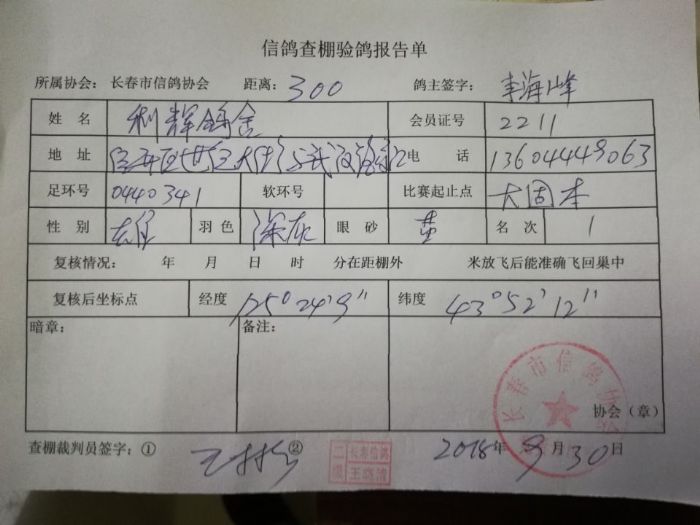 信鸽查棚验鸽报告单
所属协会： 长春市信鸽协会 距离： 300 鸽主签字： 海峰
姓 名 利辉鸽舍 会员证号 2211
地 址 电 话 13604449063
足环号 0440341 软环号 比赛起止点 大固本
性 别 雄 羽 色 深灰 眼 砂 黄 名 次 1
复核情况： 年 月 日 时 分在距棚外 米放飞后能准确飞回巢中
复核后坐标点 经度 125°24'9" 纬度 43°52'12"
暗章： 备注：
长春市信鸽协会
协会（章）
查棚裁判员签字：① ② 2018年 9月30日
二级 长春信鸽